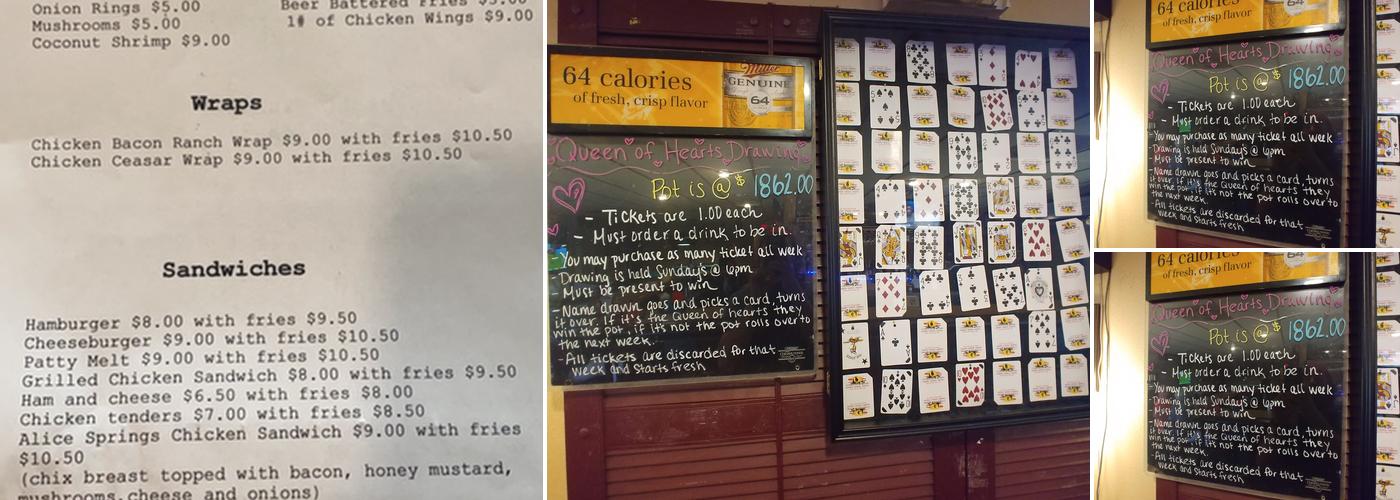 Onion Rings $5.00
Mushrooms $5.00
Coconut Shrimp $9.00
Beer Battered Fries $5.00
1# of Chicken Wings $9.00
Wraps
Chicken Bacon Ranch Wrap $9.00 with fries $10.50
Chicken Ceasar Wrap $9.00 with fries $10.50
Sandwiches
Hamburger $8.00 with fries $9.50
Cheeseburger $9.00 with fries $10.50
Patty Melt $9.00 with fries $10.50
Grilled Chicken Sandwich $8.00 with fries $9.50
Ham and cheese $6.50 with fries $8.00
Chicken tenders $7.00 with fries $8.50
Alice Springs Chicken Sandwich $9.00 with fries
$10.50
(chix breast topped with bacon, honey mustard,
mushrooms, cheese and onions)
64 calories
of fresh, crisp flavor
Miller
GENUINE
64
Queen of Hearts Drawing
Pot is @ $ 1862.00
- Tickets are 1.00 each
- Must order a drink to be in.
- You may purchase as many ticket all week
- Drawing is held Sunday's @ 6pm
- Must be present to win
- Name drawn goes and picks a card, turns
it over. if it's the Queen of hearts they
win the pot, if it's not the pot rolls over to
the next week.
- All tickets are discarded for that
week and starts fresh
64 calories
of fresh, crisp flavor
64
Queen of Hearts Drawing
Pot is @ $ 1862.00
- Tickets are 1.00 each
- Must order a drink to be in.
- You may purchase as many ticket all week
- Drawing is held Sunday's @ 6pm
- Must be present to win
- Name drawn goes and picks a card, turns
it over. if it's the Queen of hearts they
win the pot, if it's not the pot rolls over to
the next week.
- All tickets are discarded for that
week and starts fresh
64 calories
of fresh, crisp flavor
Queen of Hearts Drawing
Pot is @ $ 1862.00
- Tickets are 1.00 each
- Must order a drink to be in.
- You may purchase as many ticket all week
- Drawing is held Sunday's @ 6pm
- Must be present to win
- Name drawn goes and picks a card, turns
it over. if it's the Queen of hearts they
win the pot, if it's not the pot rolls over to
the next week.
- All tickets are discarded for that
week and starts fresh